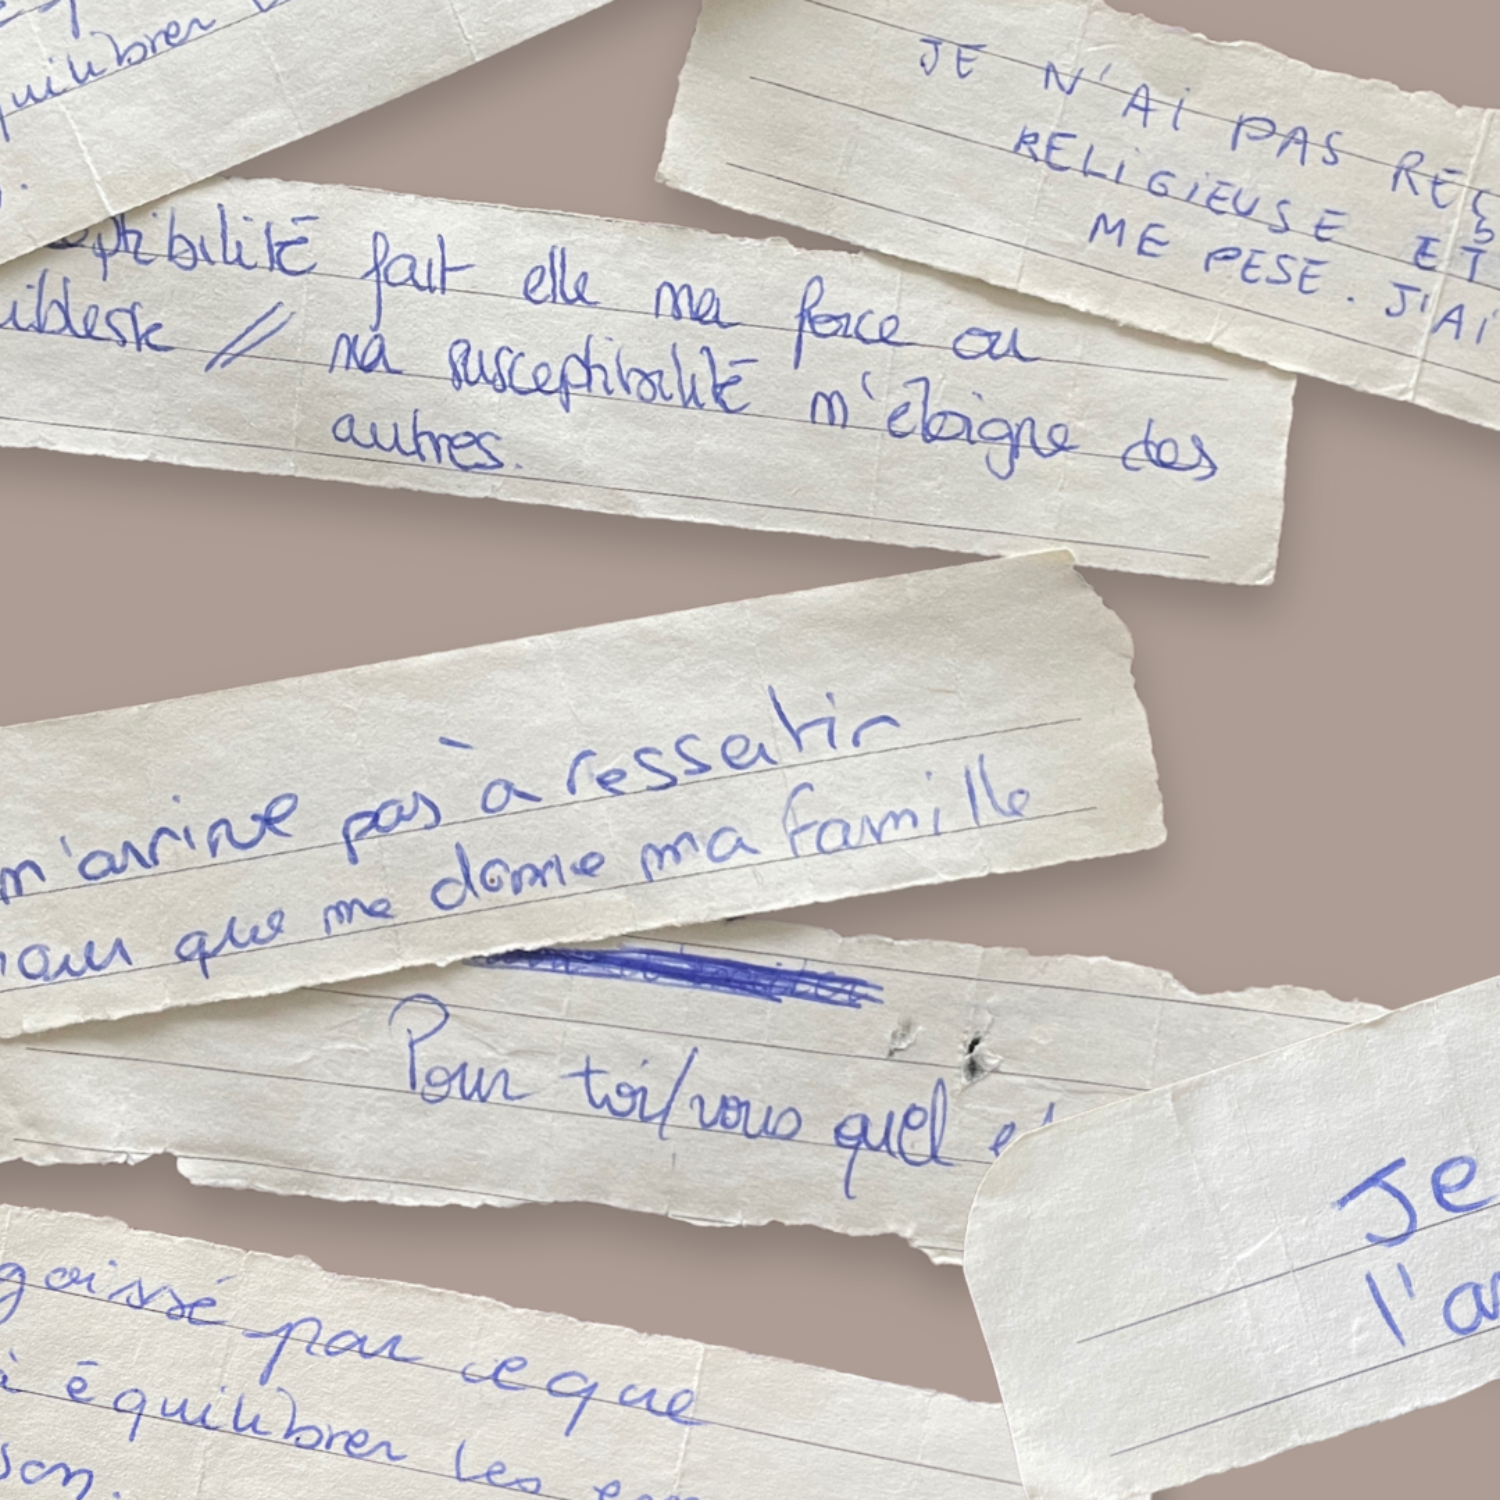 quilibrer
JE N'AI PAS RES
RELIGIEUSE ET
ME PESE. J'AI
eptibilité fait elle ma force ou
iblesse // ma susceptibilité m'éloigne des
autres.
m'arrive pas à ressentir
mour que me donne ma famille
Pour toi/vous quel
Je
l'a
goissé par ce que
i équilibrer les
son.